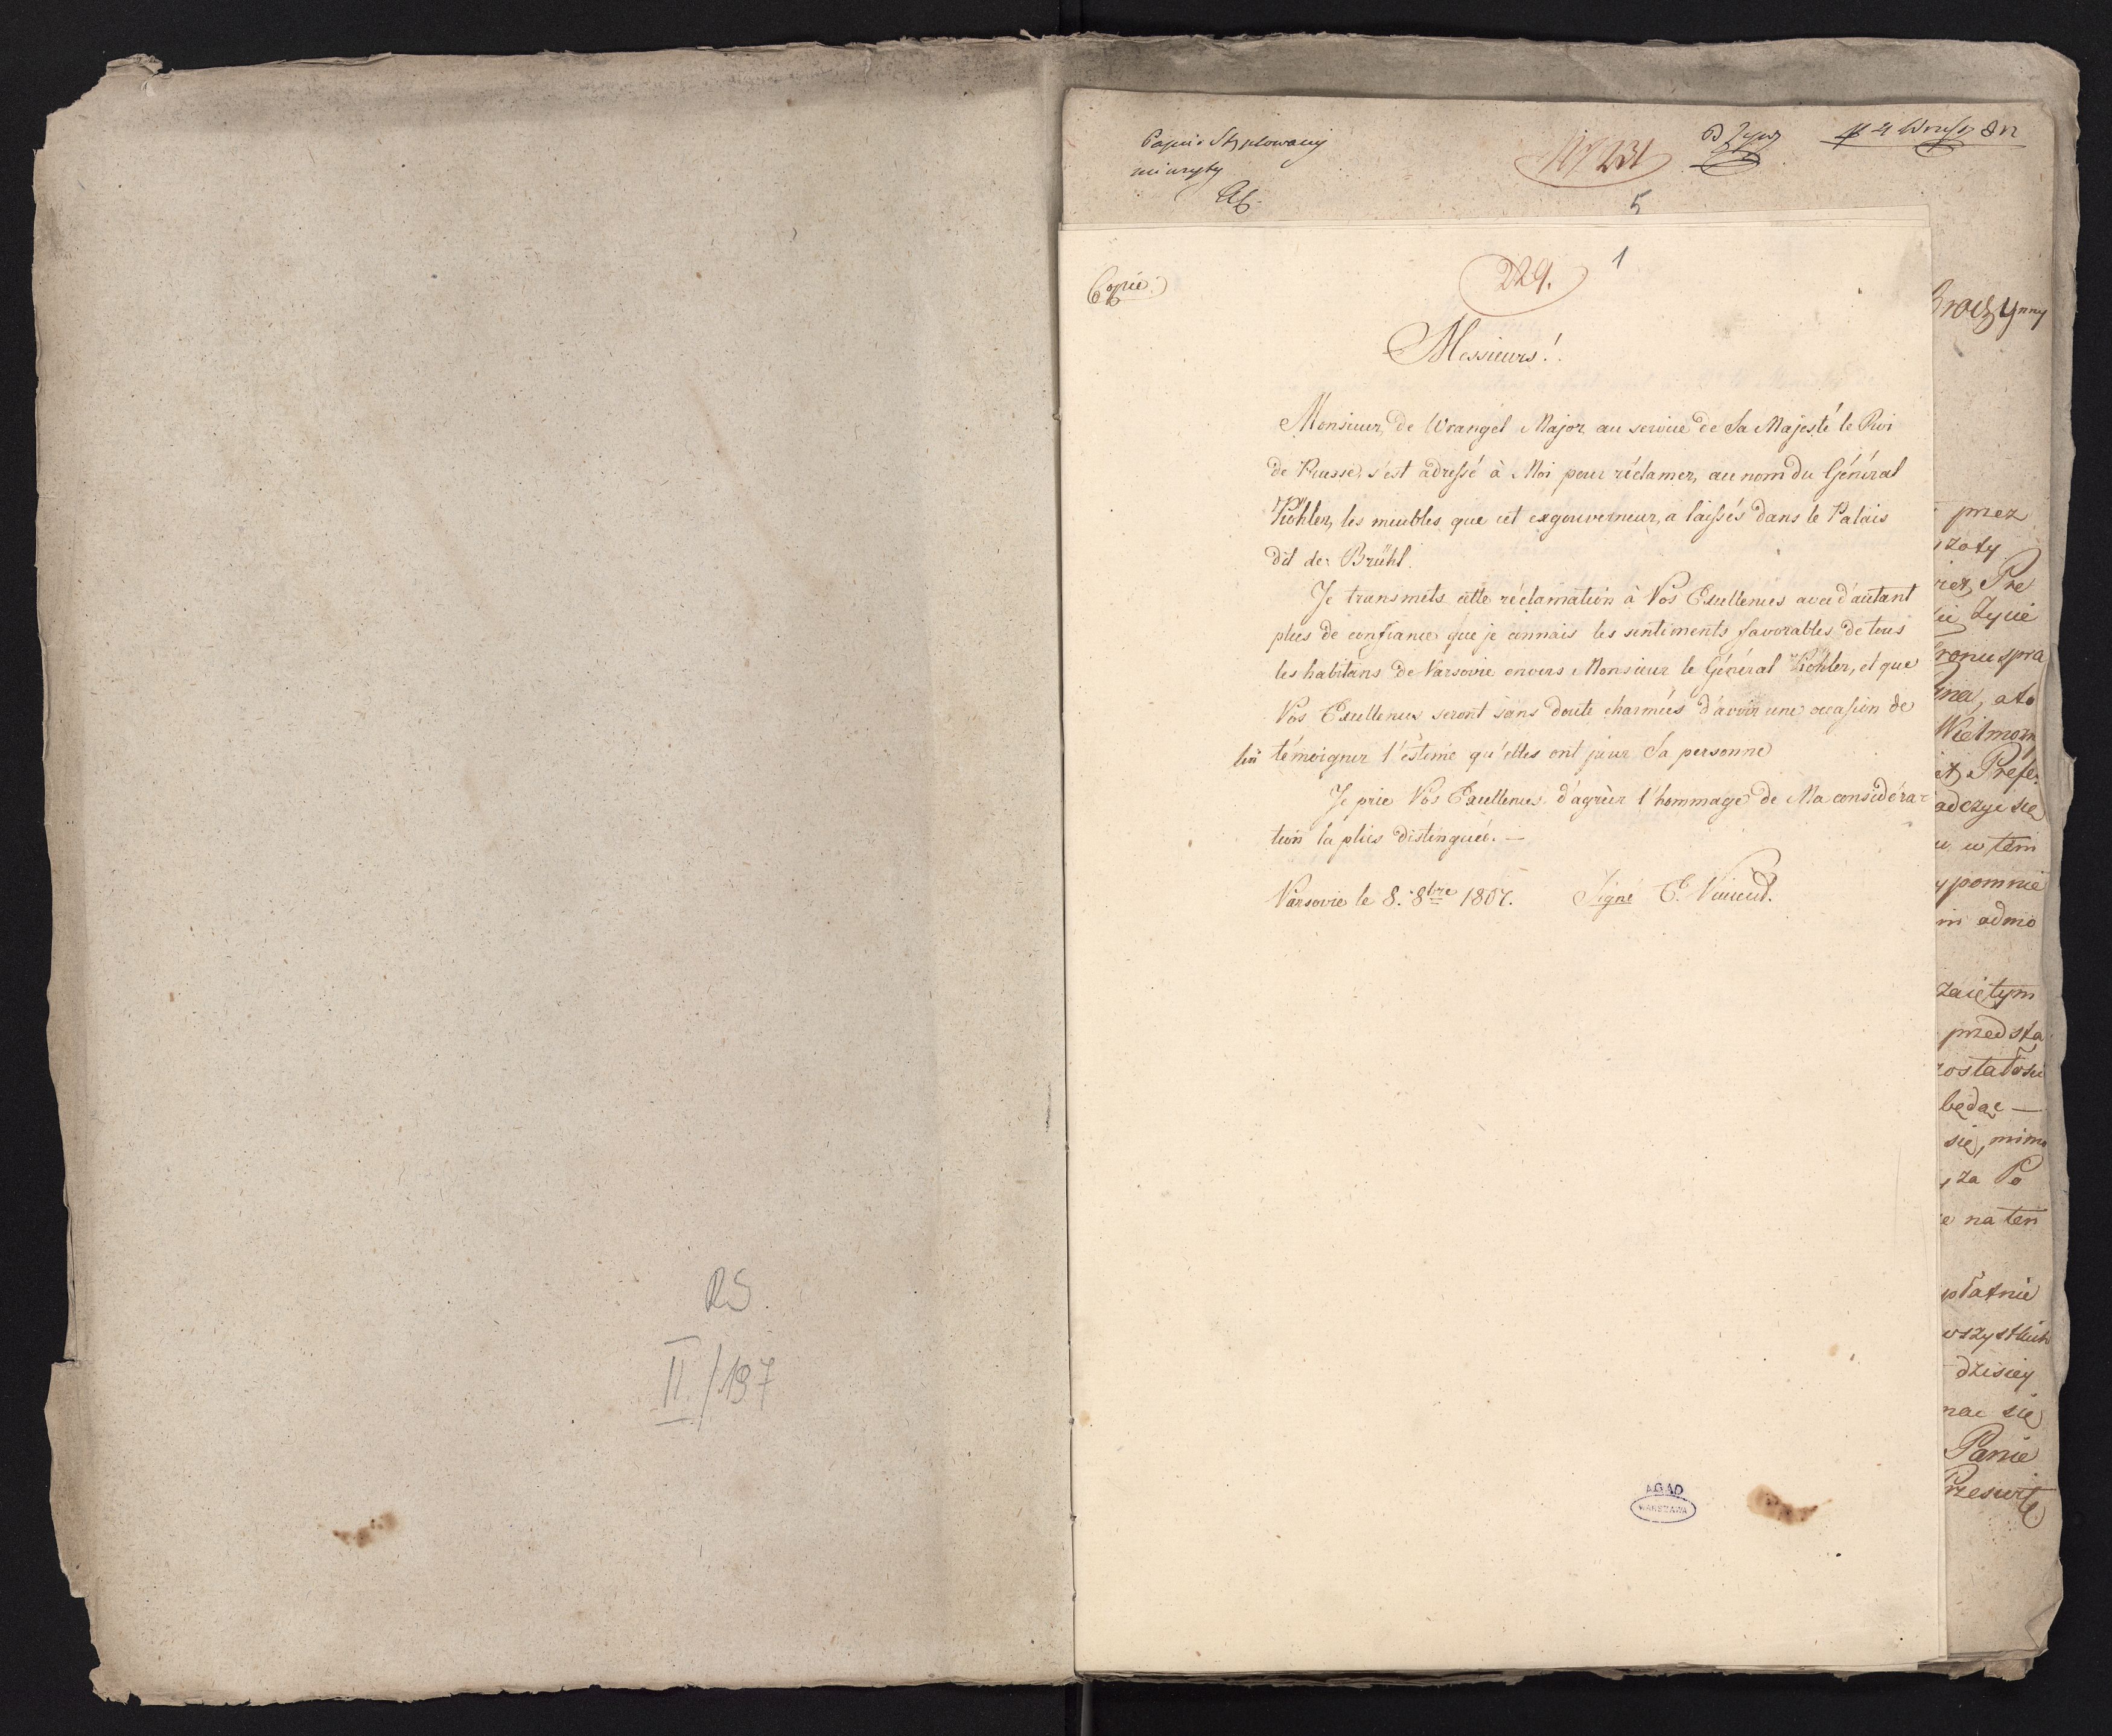 RS
II./197
Papier Stęplowany
nieużyty
N 231
5
Copie
229.
1
Messieurs!
Monsieur, de Wrangel Major au service de Sa Majesté le Roi
de Prusse, s'est adressé à Moi pour réclamer, au nom du Général
Köhler, les meubles que cet exgouverneur, a laissés dans le Palais
dit de Brühl.
Je transmets cette réclamation à Vos Excellences avec d'autant
plus de confiance que je connais les sentiments favorables de tous
les habitans de Varsovie envers Monsieur le Général Köhler, et que
Vos Excellences seront sans doute charmées d'avoir une occasion de
lui témoigner l'estime qu'elles ont pour Sa personne
Je prie Vos Excellences d'agréer l'hommage de Ma considéra-
tion la plus distinguée. —
Varsovie le 8. 8bre 1807. Signé E. Vincent.
AGAD
WARSZAWA
przez
Pre
życie
spra
ato
Prefe
adczyć się
w tém
ypomnie
admo
zaiętym
przedsta
ostałości
będąc —
się, mimo
za Po
na ten
płatnie
wszystkich
dzisiey
nac się
Panie
Prześwit